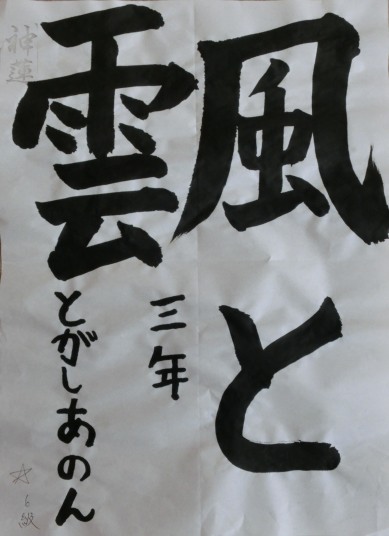 風と
雲
三年
とがしあのん
6級